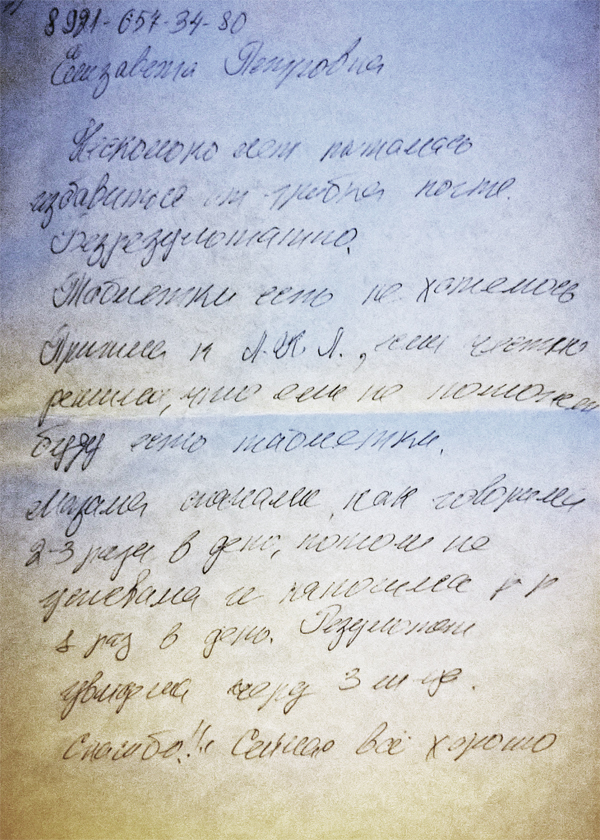 8 921-657-34-80
Елизавета Петровна
Несколько лет пыталась
избавиться от грибка ногтя.
Безрезультатно.
Таблетки есть не хотелось
Пришла к Л.И.Л., если честно
решила, что если не поможет
буду есть таблетки.
Мазала сначала, как говорили
2-3 раза в день, потом не
успевала и наносила
1 раз в день. Результат
увидела через 3 м-ца.
Спасибо!!! Сейчас всё хорошо